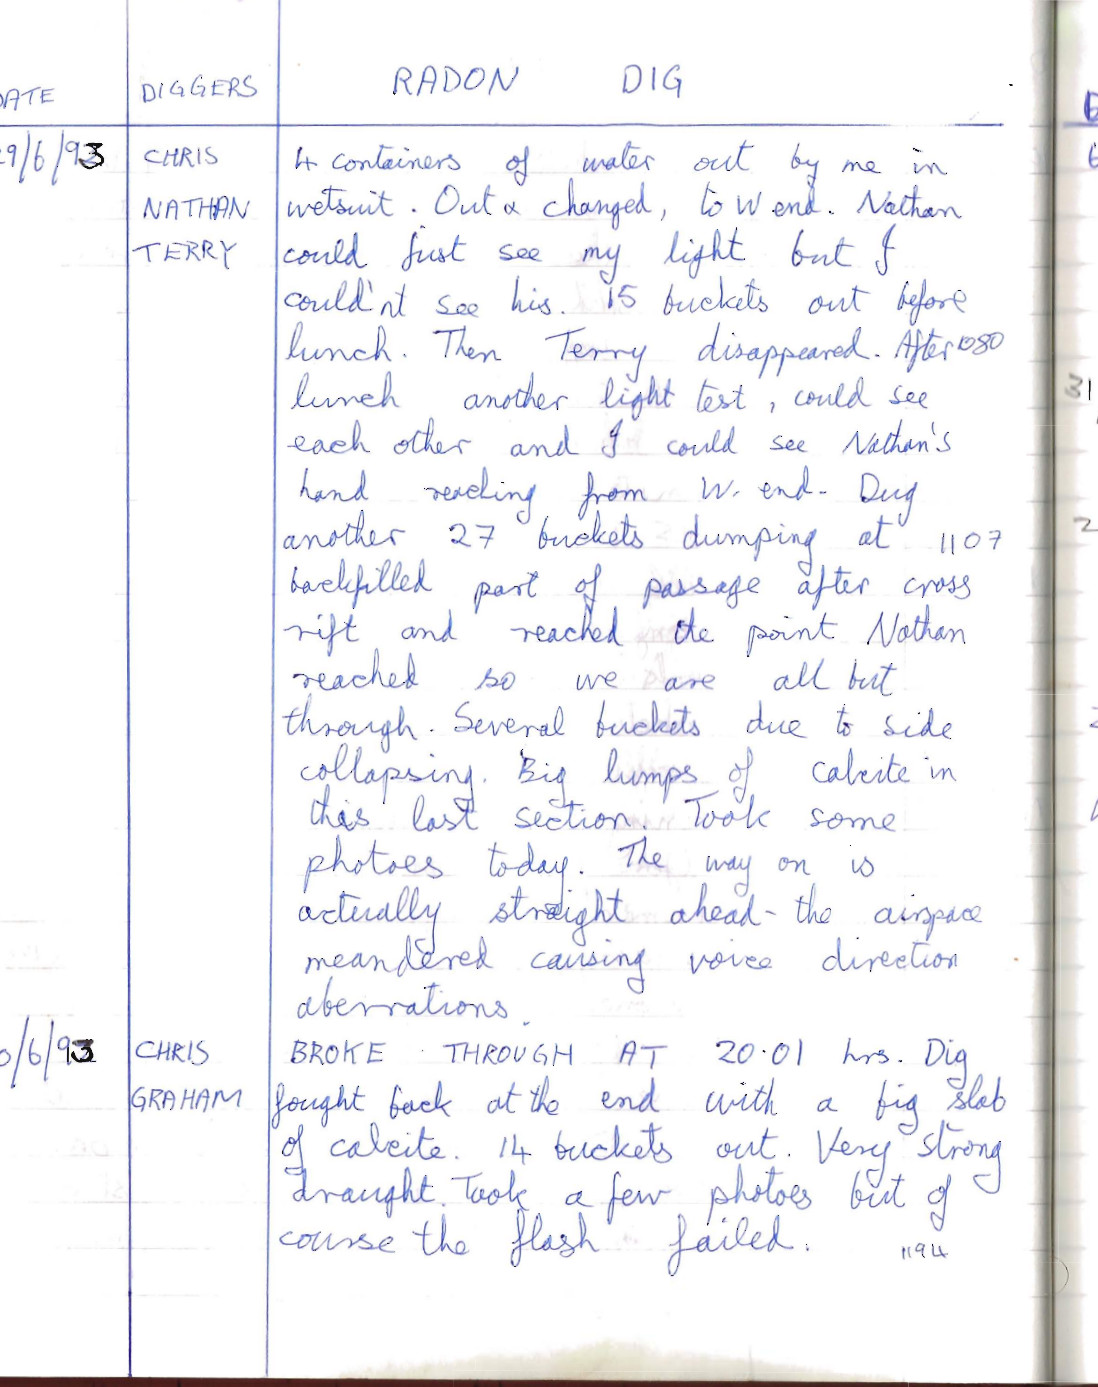 DATE DIGGERS RADON DIG
29/6/93 CHRIS 4 containers of water out by me in
NATHAN wetsuit. Out & changed, to W end. Nathan
TERRY could just see my light but I
could'nt see his. 15 buckets out before
lunch. Then Terry disappeared. After 1080
lunch another light test, could see
each other and I could see Nathan's
hand reaching from W. end. Dug
another 27 buckets dumping at 1107
backfilled part of passage after cross
rift and reached the point Nathan
reached so we are all but
through. Several buckets due to side
collapsing. Big lumps of calcite in
this last section. Took some
photoes today. The way on is
actually straight ahead - the airspace
meandered causing voice direction
aberrations.
0/6/93 CHRIS BROKE THROUGH AT 20.01 hrs. Dig
GRAHAM fought back at the end with a big slab
of calcite. 14 buckets out. Very strong
draught. Took a few photoes but of
course the flash failed. 1194
31
2